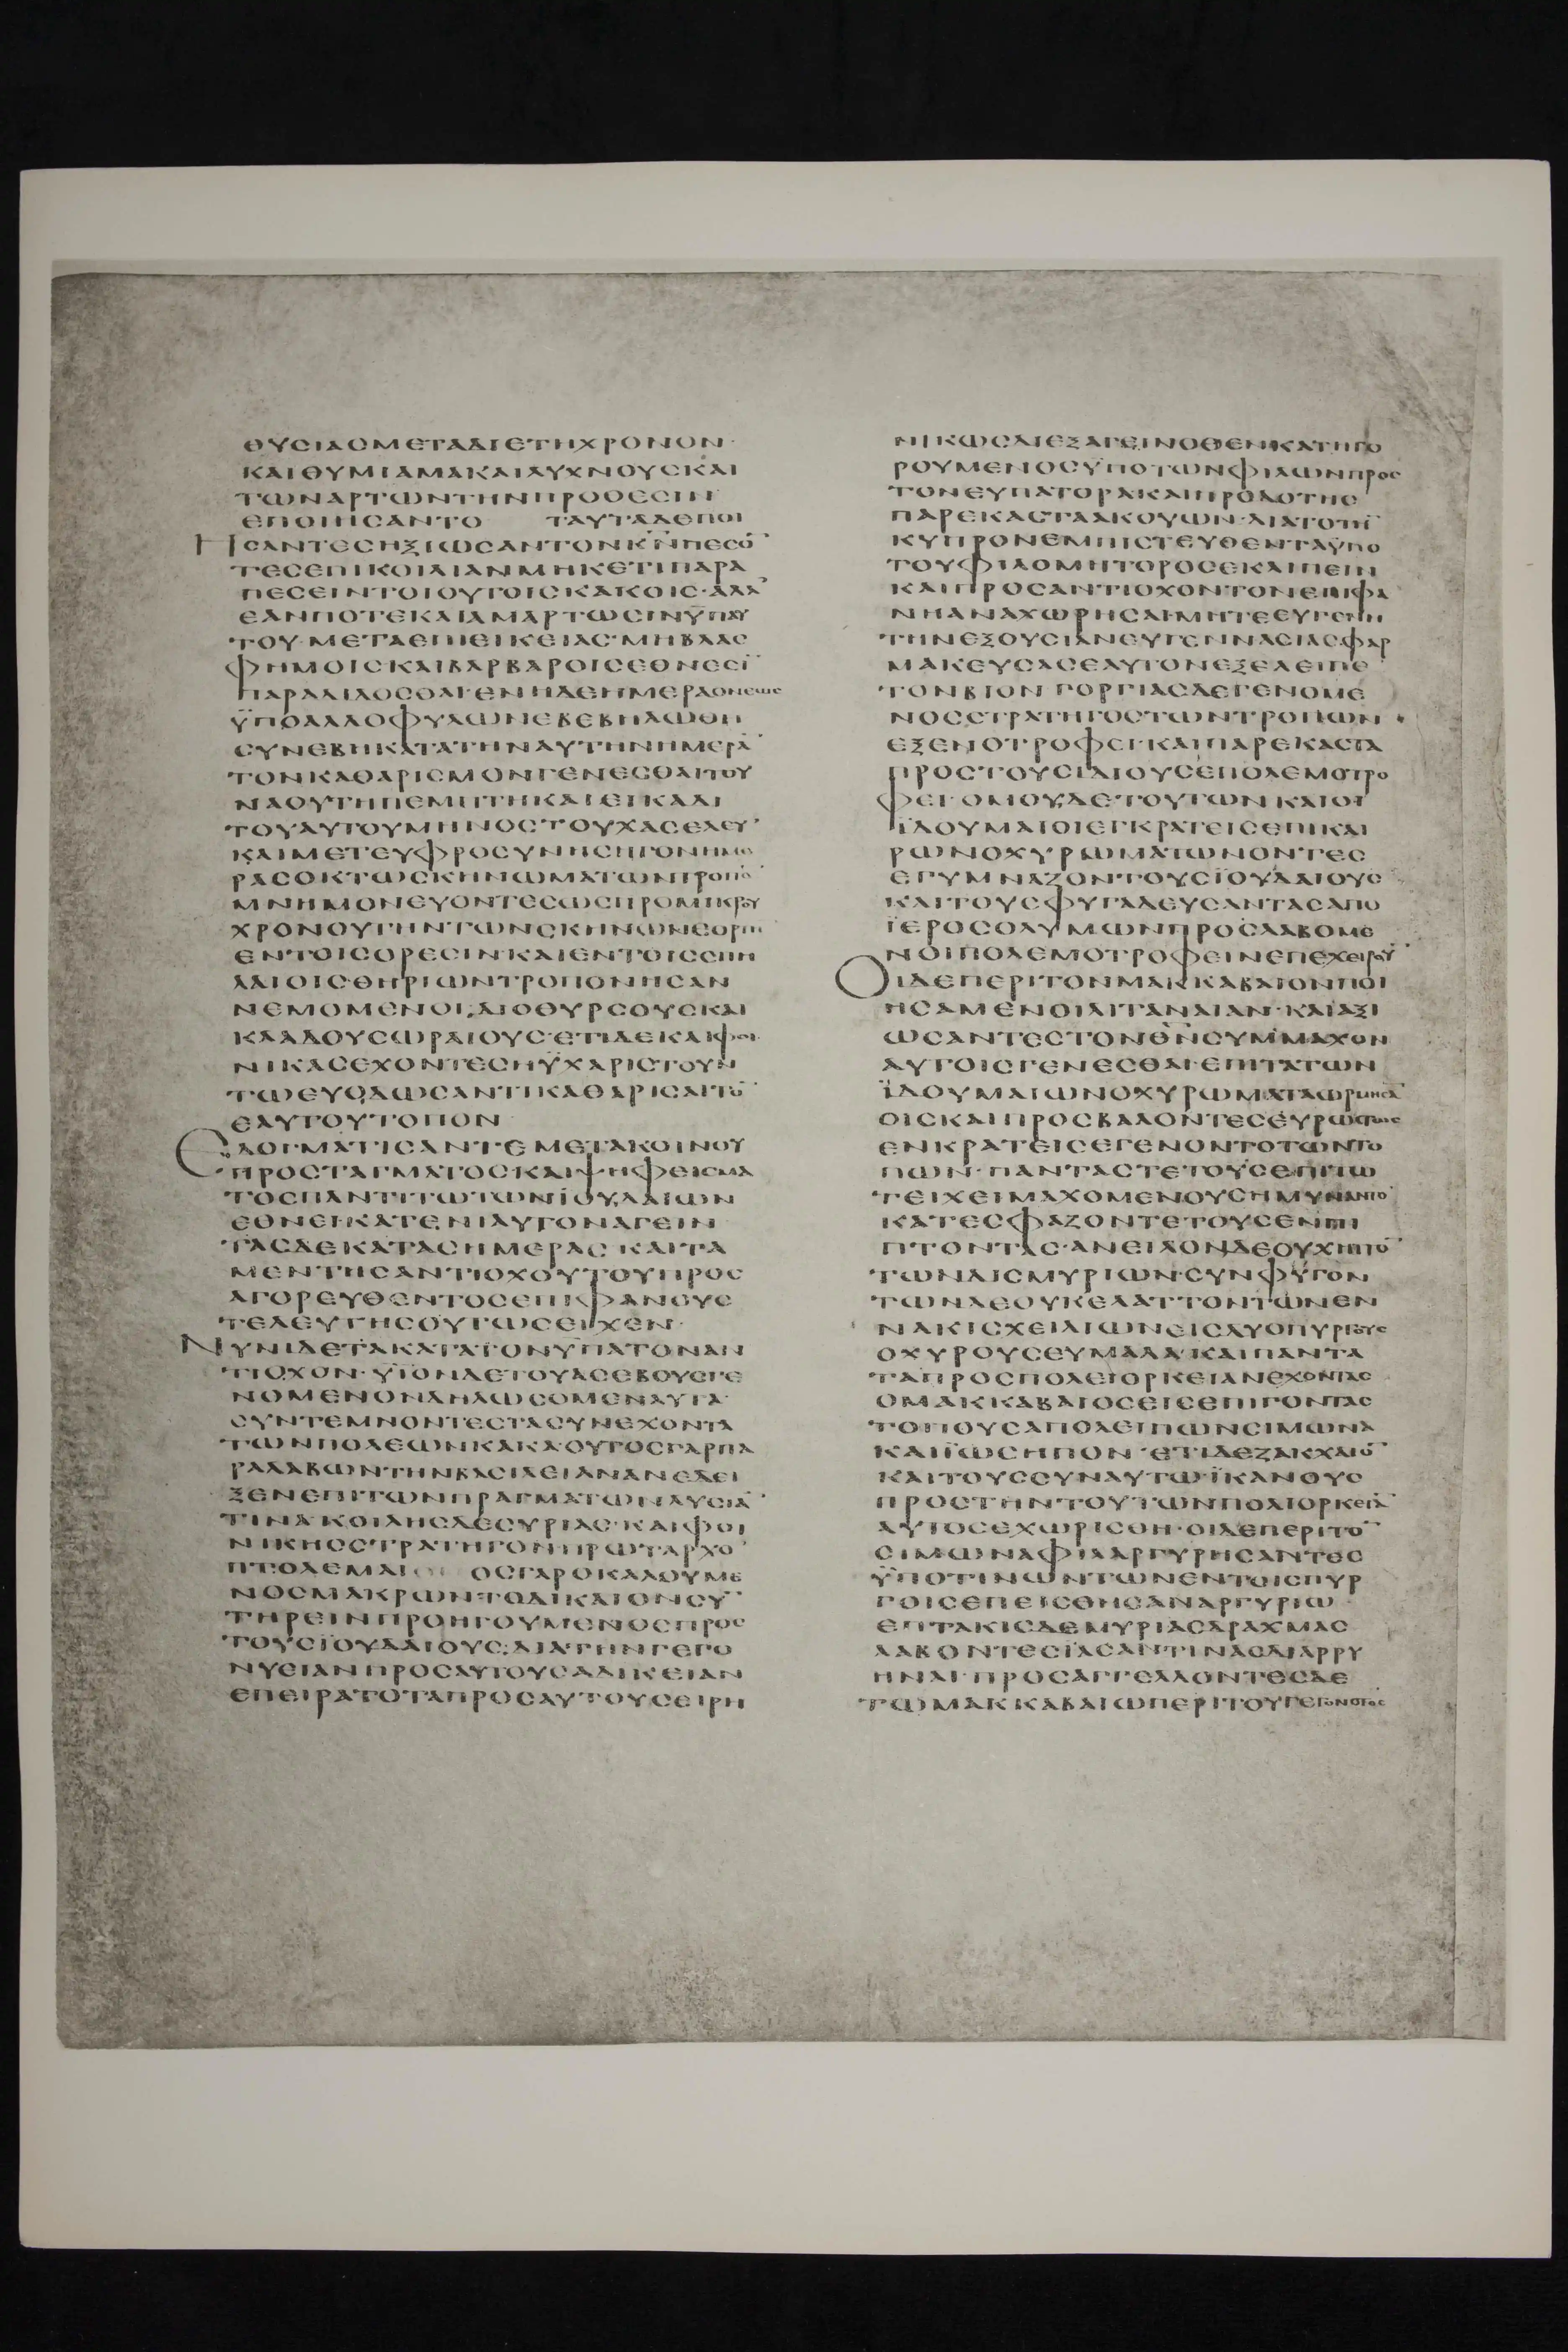 ΘΥϹΙΑϹΜΕΤΑΔΙΕΤΗΧΡΟΝΟΝ·
ΚΑΙΘΥΜΙΑΜΑΚΑΙΛΥΧΝΟΥϹΚΑΙ
ΤΩΝΑΡΤΩΝΤΗΝΠΡΟΘΕϹΙΝ
ΕΠΟΙΗϹΑΝΤΟ ΤΑΥΤΑΔΕΠΟΙ
ΗϹΑΝΤΕϹΗΞΙΩϹΑΝΤΟΝΚΝ̅ΠΕϹΟ̅
ΤΕϹΕΠΙΚΟΙΛΙΑΝΜΗΚΕΤΙΠΑΡΑ
ΠΕϹΕΙΝΤΟΙΟΥΤΟΙϹΚΑΚΟΙϹ·ΑΛΛ᾿
ΕΑΝΠΟΤΕΚΑΙΑΜΑΡΤΩϹΙΝΫΠΑΥ
ΤΟΥ·ΜΕΤΑΕΠΙΕΙΚΕΙΑϹ·ΜΗΒΛΑϹ
ΦΗΜΟΙϹΚΑΙΒΑΡΒΑΡΟΙϹΕΘΝΕϹΙ̅
ΠΑΡΑΔΙΔΟϹΘΑΙ·ΕΝΗΔΕΗΜΕΡΑΟΝΕΩϹ
ΫΠΟΑΛΛΟΦΥΛΩΝΕΒΕΒΗΛΩΘΗ
ϹΥΝΕΒΗΚΑΤΑΤΗΝΑΥΤΗΝΗΜΕΡΑ̅
ΤΟΝΚΑΘΑΡΙϹΜΟΝΓΕΝΕϹΘΑΙΤΟΥ
ΝΑΟΥΤΗΠΕΜΠΤΗΚΑΙΕΙΚΑΔΙ
ΤΟΥΑΥΤΟΥΜΗΝΟϹΤΟΥΧΑϹΕΛΕΥ᾿
ΚΑΙΜΕΤΕΥΦΡΟϹΥΝΗϹΗΓΟΝΗΜΕ
ΡΑϹΟΚΤΩϹΚΗΝΩΜΑΤΩΝΤΡΟΠΟ̅
ΜΝΗΜΟΝΕΥΟΝΤΕϹΩϹΠΡΟΜΙΚΡΟΥ
ΧΡΟΝΟΥΤΗΝΤΩΝϹΚΗΝΩΝΕΟΡΤΗ
ΕΝΤΟΙϹΟΡΕϹΙΝΚΑΙΕΝΤΟΙϹϹΠΗ
ΛΑΙΟΙϹΘΗΡΙΩΝΤΡΟΠΟΝΗϹΑΝ
ΝΕΜΟΜΕΝΟΙ·ΔΙΟΘΥΡϹΟΥϹΚΑΙ
ΚΛΑΔΟΥϹΩΡΑΙΟΥϹ·ΕΤΙΔΕΚΑΙΦΟΙ
ΝΙΚΑϹΕΧΟΝΤΕϹΗΫΧΑΡΙϹΤΟΥΝ
ΤΩΕΥΟΔΩϹΑΝΤΙΚΑΘΑΡΙϹΑΙΤΟ̅
ΕΑΥΤΟΥΤΟΠΟΝ
ΕΔΟΓΜΑΤΙϹΑΝΤΕΜΕΤΑΚΟΙΝΟΥ
ΠΡΟϹΤΑΓΜΑΤΟϹΚΑΙΨΗΦΕΙϹΜΑ
ΤΟϹΠΑΝΤΙΤΩΤΩΝΪΟΥΔΑΙΩΝ
ΕΘΝΕΙ·ΚΑΤΕΝΙΑΥΤΟΝΑΓΕΙΝ
ΤΑϹΔΕΚΑΤΑϹΗΜΕΡΑϹ ΚΑΙΤΑ
ΜΕΝΤΗϹΑΝΤΙΟΧΟΥΤΟΥΠΡΟϹ
ΑΓΟΡΕΥΘΕΝΤΟϹΕΠΙΦΑΝΟΥϹ
ΤΕΛΕΥΤΗϹΟΥΤΩϹΕΙΧΕΝ·
ΝΥΝΙΔΕΤΑΚΑΤΑΤΟΝΥΠΑΤΟΝΑΝ
ΤΙΟΧΟΝ·ΥΪΟΝΔΕΤΟΥΑϹΕΒΟΥϹΓΕ
ΝΟΜΕΝΟΝΔΗΛΩϹΟΜΕΝΑΥΤΑ·
ϹΥΝΤΕΜΝΟΝΤΕϹΤΑϹΥΝΕΧΟΝΤΑ
ΤΩΝΠΟΛΕΩΝΚΑΚΑ·ΟΥΤΟϹΓΑΡΠΑ
ΡΑΛΑΒΩΝΤΗΝΒΑϹΙΛΕΙΑΝΑΝΕΔΕΙ
ΞΕΝΕΠΙΤΩΝΠΡΑΓΜΑΤΩΝΛΥϹΙΑ̅
ΤΙΝΑ·ΚΟΙΛΗϹΔΕϹΥΡΙΑϹ·ΚΑΙΦΟΙ
ΝΙΚΗϹϹΤΡΑΤΗΓΟΝΠΡΩΤΑΡΧΟ̅
ΠΤΟΛΕΜΑΙ ΟϹΓΑΡΟΚΑΛΟΥΜΕ
ΝΟϹΜΑΚΡΩΝΤΟΔΙΚΑΙΟΝϹΥ̅
ΤΗΡΕΙΝΠΡΟΗΓΟΥΜΕΝΟϹΠΡΟϹ
ΤΟΥϹΪΟΥΔΑΙΟΥϹ·ΔΙΑΤΗΝΓΕΓΟ
ΝΥΕΙΑΝΠΡΟϹΑΥΤΟΥϹΑΔΙΚΕΙΑΝ
ΕΠΕΙΡΑΤΟΤΑΠΡΟϹΑΥΤΟΥϹΕΙΡΗ
ΝΙΚΩϹΔΙΕΞΑΓΕΙΝΟΘΕΝΚΑΤΗΓΟ
ΡΟΥΜΕΝΟϹΫΠΟΤΩΝΦΙΛΩΝΠΡΟϹ
ΤΟΝΕΥΠΑΤΟΡΑΚΑΙΠΡΟΔΟΤΗϹ
ΠΑΡΕΚΑϹΤΑΑΚΟΥΩΝ·ΔΙΑΤΟΤΗ̅
ΚΥΠΡΟΝΕΜΠΙϹΤΕΥΘΕΝΤΑΫΠΟ
ΤΟΥΦΙΛΟΜΗΤΟΡΟϹΕΚΛΙΠΕΙΝ
ΚΑΙΠΡΟϹΑΝΤΙΟΧΟΝΤΟΝΕΠΙΦΑ
ΝΗΑΝΑΧΩΡΗϹΑΙ·ΜΗΤΕΕΥΓΕΝΗ
ΤΗΝΕΞΟΥϹΙΑΝΕΥΓΕΝΝΑϹΙΑϹΦΑΡ
ΜΑΚΕΥϹΑϹΕΑΥΤΟΝΕΞΕΛΕΙΠΕ
ΤΟΝΒΙΟΝ ΓΟΡΓΙΑϹΔΕΓΕΝΟΜΕ
ΝΟϹϹΤΡΑΤΗΓΟϹΤΩΝΤΡΟΠΩΝ
ΕΞΕΝΟΤΡΟΦΕΙ·ΚΑΙΠΑΡΕΚΑϹΤΑ
ΠΡΟϹΤΟΥϹΙΔΙΟΥϹΕΠΟΛΕΜΟΤΡΟ
ΦΕΙ·ΟΜΟΥΔΕΤΟΥΤΩΝΚΑΙΟΙ
ΪΔΟΥΜΑΙΟΙΕΓΚΡΑΤΕΙϹΕΠΙΚΑΙ
ΡΩΝΟΧΥΡΩΜΑΤΩΝΟΝΤΕϹ
ΕΓΥΜΝΑΖΟΝΤΟΥϹΪΟΥΔΑΙΟΥϹ
ΚΑΙΤΟΥϹΦΥΓΑΔΕΥϹΑΝΤΑϹΑΠΟ
ΪΕΡΟϹΟΛΥΜΩΝΠΡΟϹΛΑΒΟΜΕ
ΝΟΙΠΟΛΕΜΟΤΡΟΦΕΙΝΕΠΕΧΕΙΡΟΥ̅
ΟΙΔΕΠΕΡΙΤΟΝΜΑΚΚΑΒΑΙΟΝΠΟΙ
ΗϹΑΜΕΝΟΙΛΙΤΑΝΑΙΑΝ·ΚΑΙΑΞΙ
ΩϹΑΝΤΕϹΤΟΝΘΝ̅ϹΥΜΜΑΧΟΝ
ΑΥΤΟΙϹΓΕΝΕϹΘΑΙ·ΕΠΙΤΑΤΩΝ
ΪΔΟΥΜΑΙΩΝΟΧΥΡΩΜΑΤΑΩΡΜΗϹΑ̅
ΟΙϹΚΑΙΠΡΟϹΒΑΛΟΝΤΕϹΕΥΡΩϹΤΩϹ
ΕΝΚΡΑΤΕΙϹΕΓΕΝΟΝΤΟΤΩΝΤΟ
ΠΩΝ·ΠΑΝΤΑϹΤΕΤΟΥϹΕΠΙΤΩ
ΤΕΙΧΕΙΜΑΧΟΜΕΝΟΥϹΗΜΥΝΑΝΤΟ
ΚΑΤΕϹΦΑΖΟΝΤΕΤΟΥϹΕΝΠΙ
ΠΤΟΝΤΑϹ·ΑΝΕΙΛΟΝΔΕΟΥΧΗΤΤΟ̅
ΤΩΝΔΙϹΜΥΡΙΩΝ·ϹΥΝΦΥΓΟΝ
ΤΩΝΔΕΟΥΚΕΛΑΤΤΟΝΤΩΝΕΝ
ΝΑΚΙϹΧΕΙΛΙΩΝΕΙϹΔΥΟΠΥΡΓΟΥϹ
ΟΧΥΡΟΥϹΕΥΜΑΛΑ·ΚΑΙΠΑΝΤΑ
ΤΑΠΡΟϹΠΟΛΕΙΟΡΚΕΙΑΝΕΧΟΝΤΑϹ
ΟΜΑΚΚΑΒΑΙΟϹΕΙϹΕΠΙΓΟΝΤΑϹ
ΤΟΠΟΥϹΑΠΟΛΕΙΠΩΝϹΙΜΩΝΑ
ΚΑΙΪΩϹΗΠΟΝ·ΕΤΙΔΕΖΑΚΧΑΙΟ̅
ΚΑΙΤΟΥϹϹΥΝΑΥΤΩΪΚΑΝΟΥϹ
ΠΡΟϹΤΗΝΤΟΥΤΩΝΠΟΛΙΟΡΚΕΙΑ̅
ΑΥΤΟϹΕΧΩΡΙϹΘΗ·ΟΙΔΕΠΕΡΙΤΟ̅
ϹΙΜΩΝΑΦΙΛΑΡΓΥΡΗϹΑΝΤΕϹ
ΫΠΟΤΙΝΩΝΤΩΝΕΝΤΟΙϹΠΥΡ
ΓΟΙϹΕΠΕΙϹΘΗϹΑΝΑΡΓΥΡΙΩ·
ΕΠΤΑΚΙϹΔΕΜΥΡΙΑϹΔΡΑΧΜΑϹ
ΛΑΒΟΝΤΕϹΪΑϹΑΝΤΙΝΑϹΔΙΑΡΡΥ
ΗΝΑΙ·ΠΡΟϹΑΓΓΕΛΛΟΝΤΕϹΔΕ
ΤΩΜΑΚΚΑΒΑΙΩΠΕΡΙΤΟΥΓΕΓΟΝΟΤΟϹ